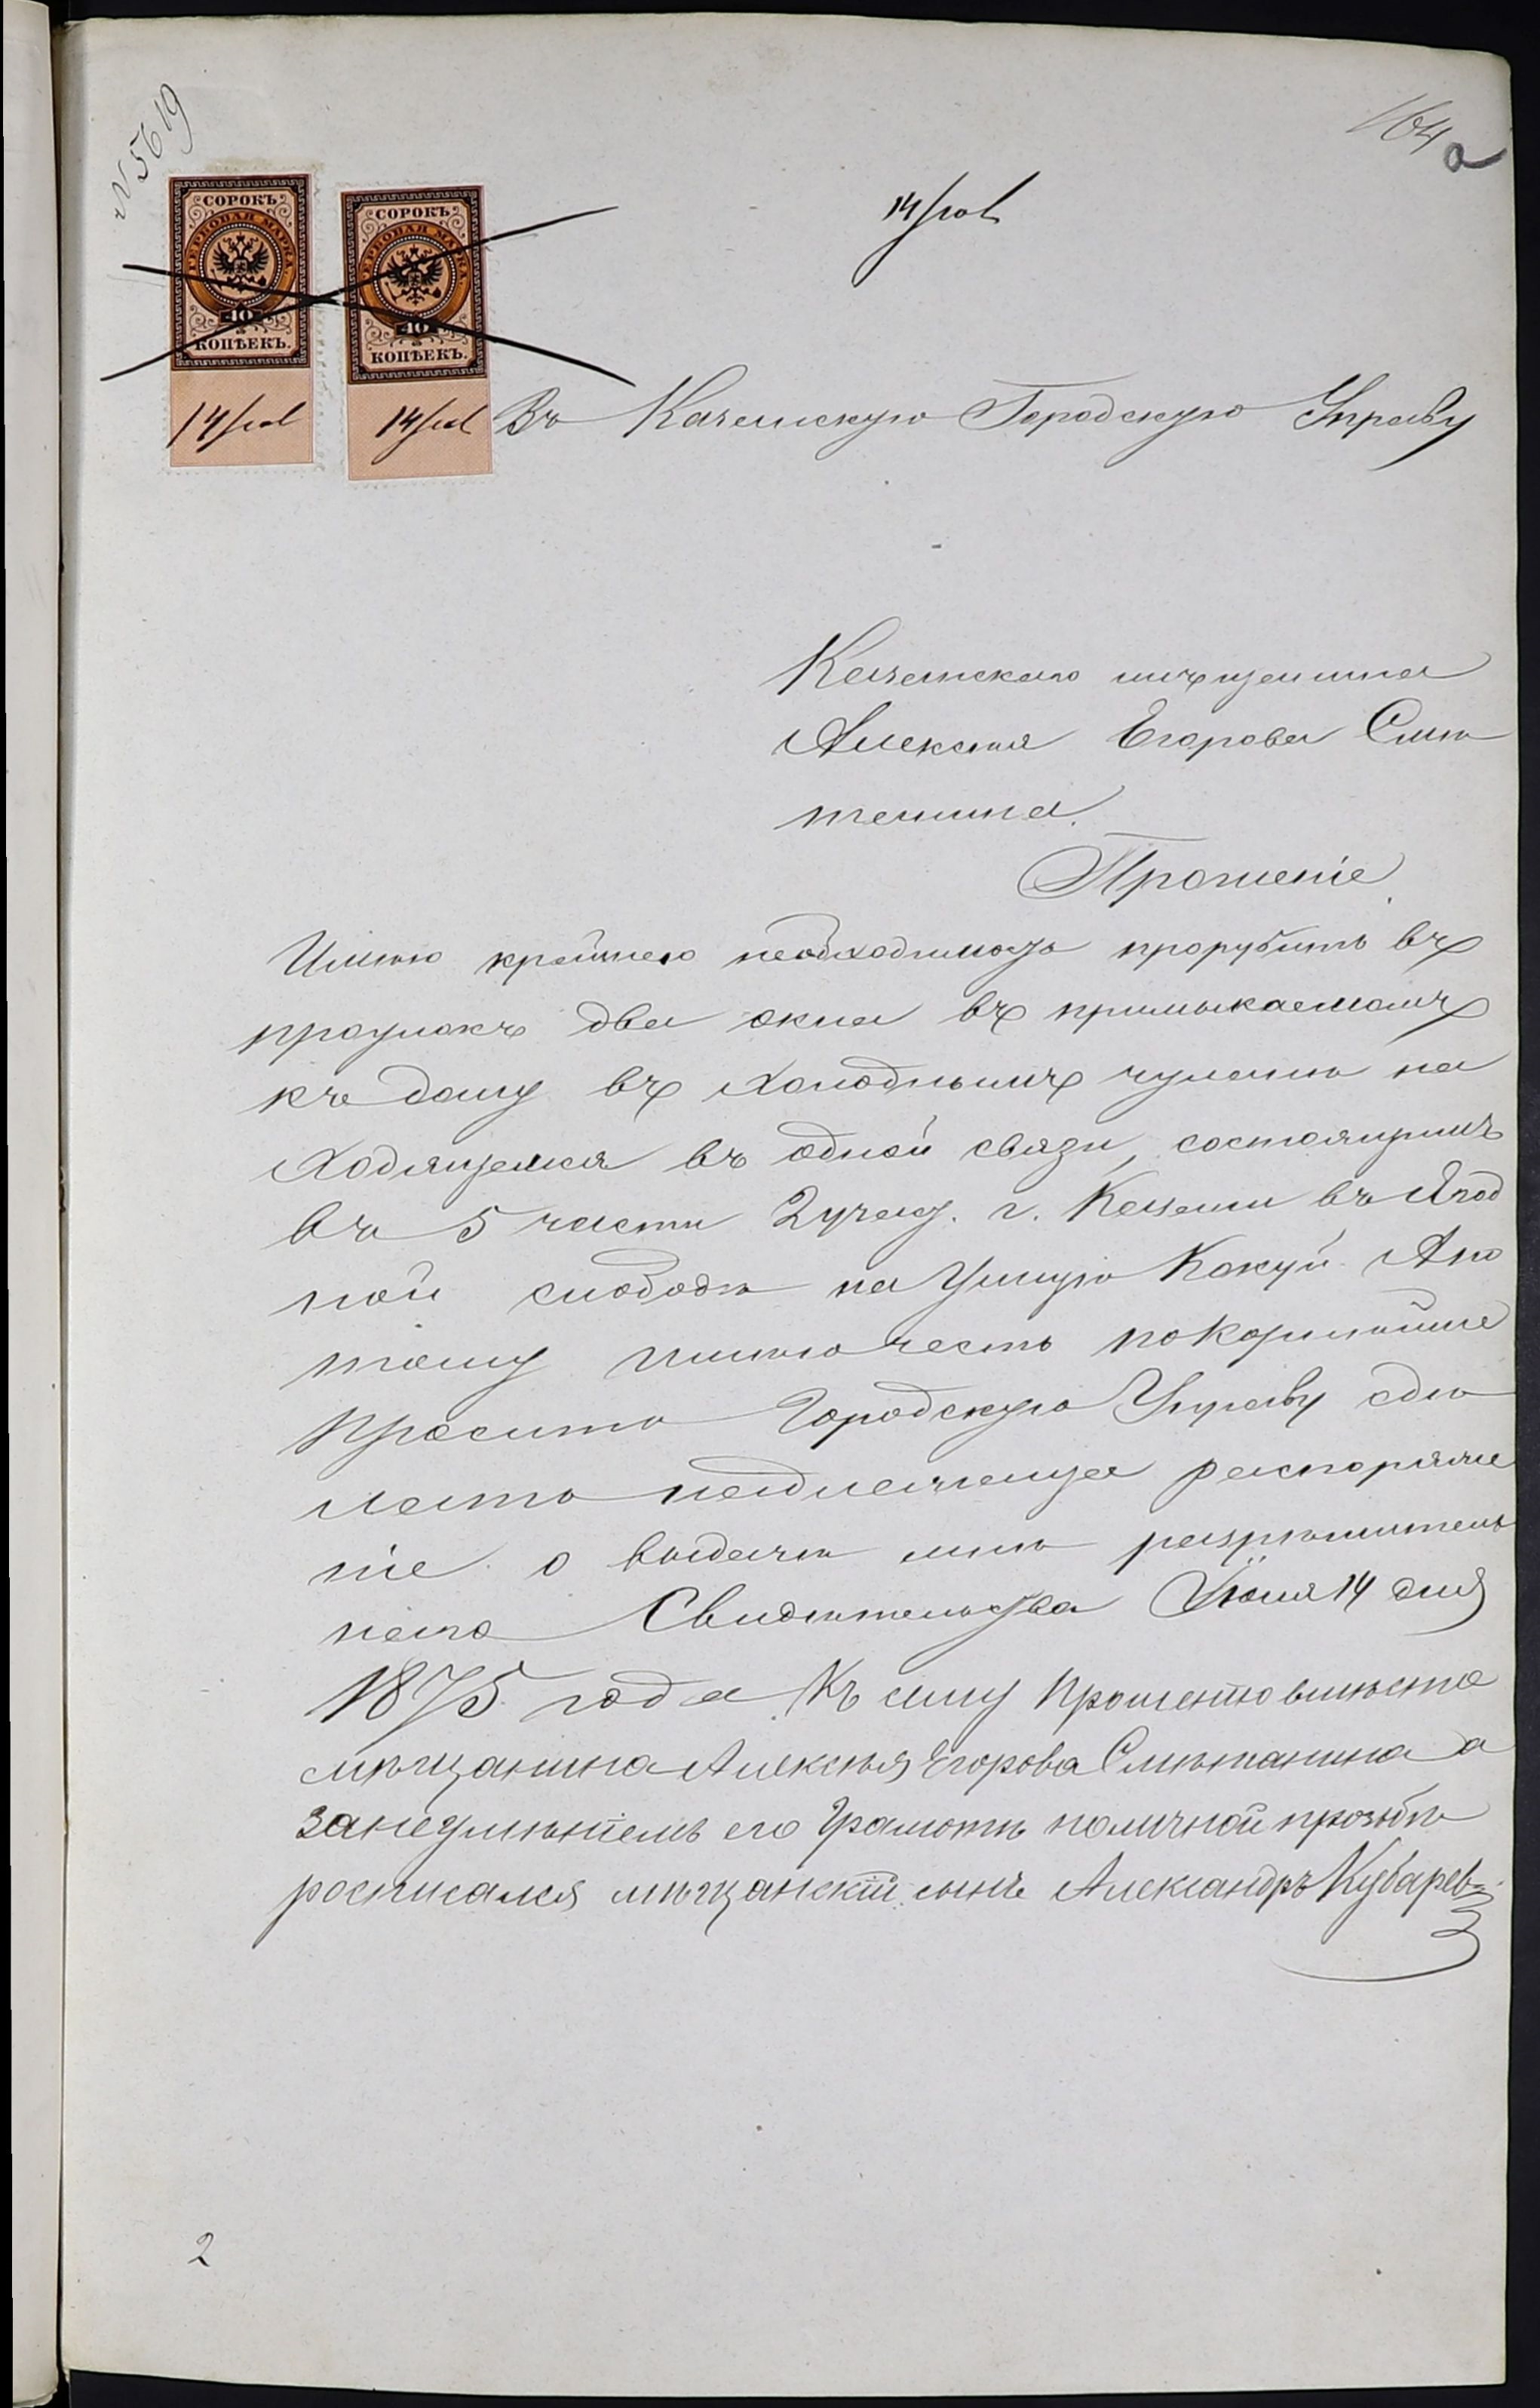 № 5619
164
а
14 июл
СОРОКЪ
ГЕРБОВАЯ МАРКА
40
КОПѢЕКЪ.
14 июл
СОРОКЪ
ГЕРБОВАЯ МАРКА
40
КОПѢЕКЪ.
14 июл
Въ Казанскую Городскую Управу
Казанскаго мѣщанина
Алексѣя Егорова Смѣ
танина.
Прошеніе
Имѣю крайнею необходимость прорубить въ
проулокъ два окна въ примыкаемомъ
къ дому въ холодномъ чуланѣ на
ходящемся въ одной связи, состоящимъ
въ 5 части 2 участ. г. Казани въ Ягод
ной слободѣ на Улицу Кокуй. А по
тому имѣю честь покорнѣйше
просить Городскую Управу сдѣ
лать надлежащее распоряже
ніе о выдачѣ мнѣ разрѣшитель
наго Свидѣтельства Июля 14 дня
1875 года Къ сему Прошенію вмѣсто
мѣщанина Алексѣя Егорова Смѣтанина а
за неумѣніемъ его Грамоты по личной прозьбѣ
росписался мѣщанскій сынъ Александръ Кубарев
2